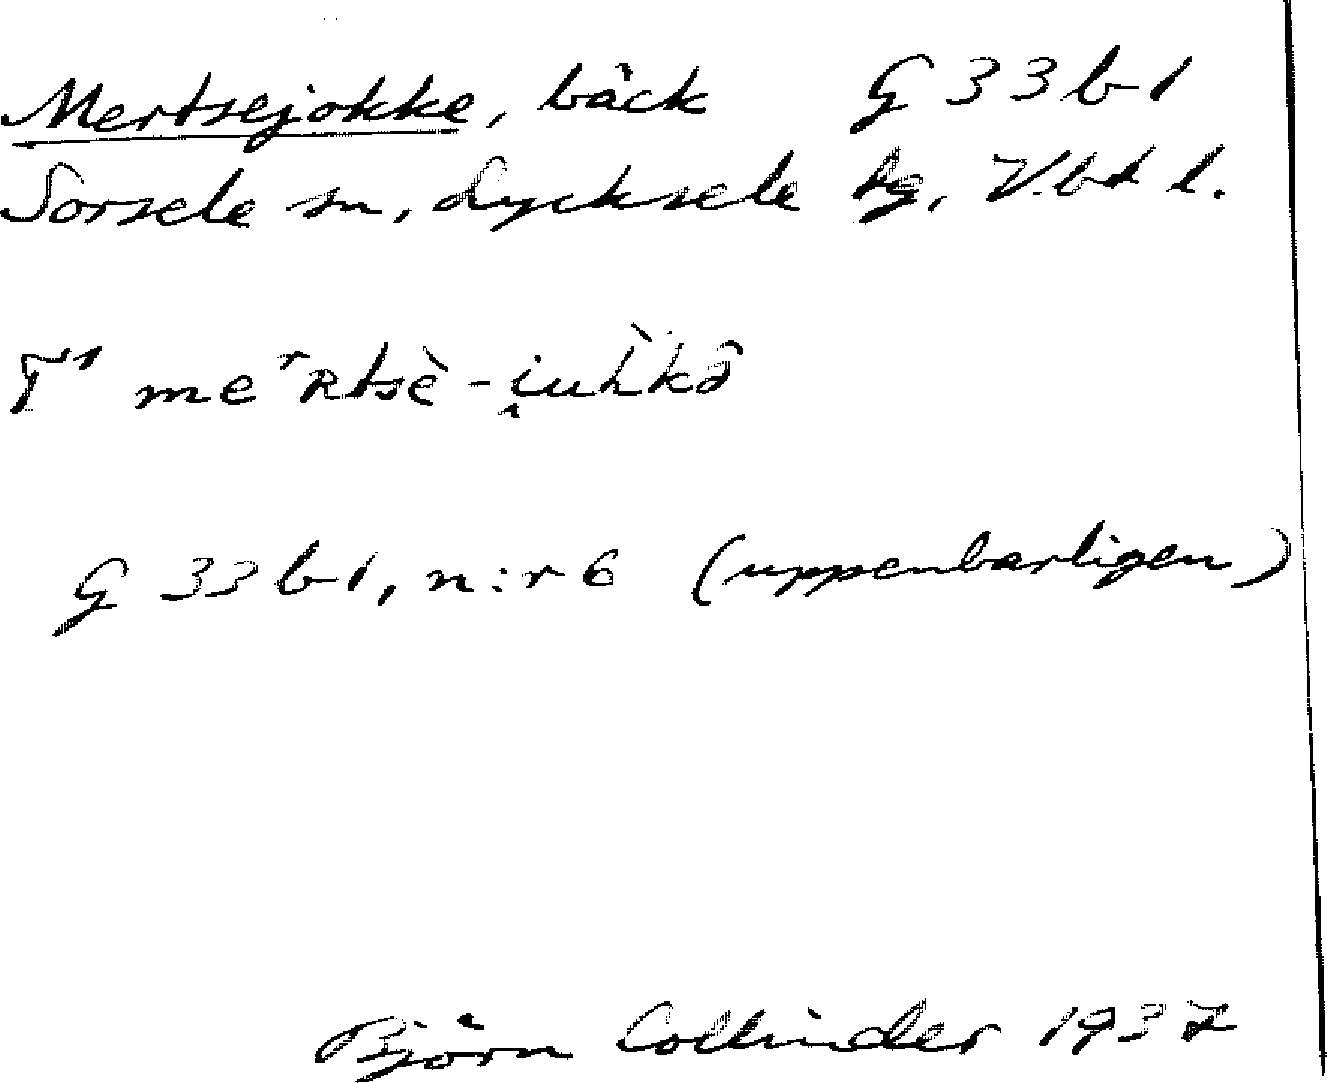 Mertsejokke, bäck G 33 b 1
Sorsele sn, Lycksele tg, V.bt l.
T¹ meʳʀtsè-i̯uh̀kə̂
G 33 b 1, n:r 6 (uppenbarligen)
Björn Collinder 1937